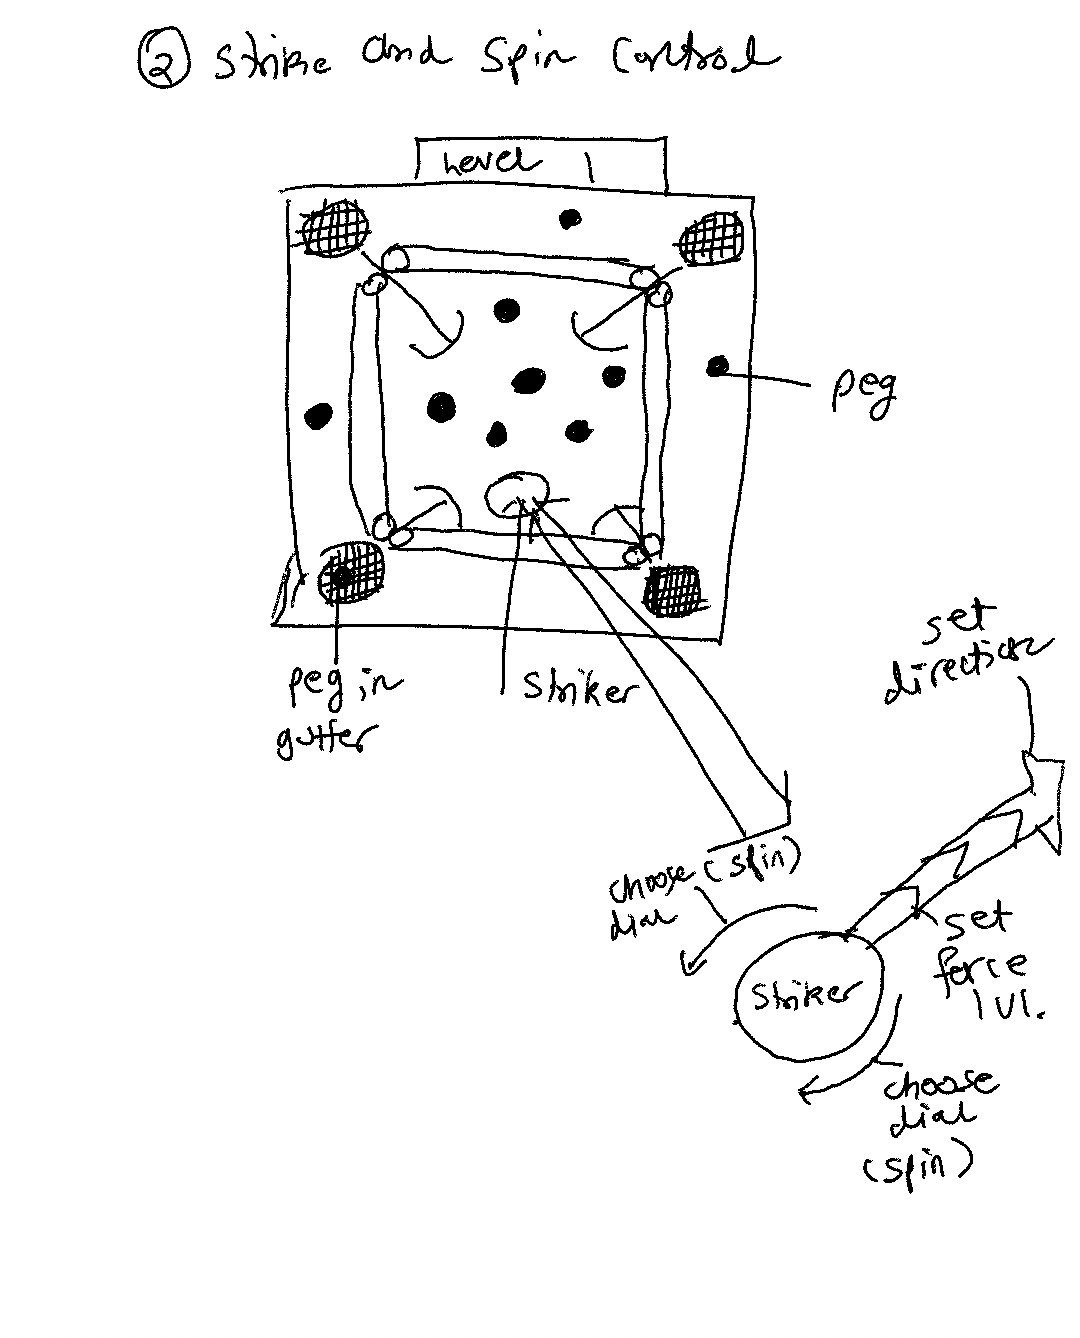 ② Strike and Spin Control
Level 1
peg
peg in
gutter
Striker
set
direction
choose (spin)
dial
set
force
lvl.
Striker
choose
dial
(spin)